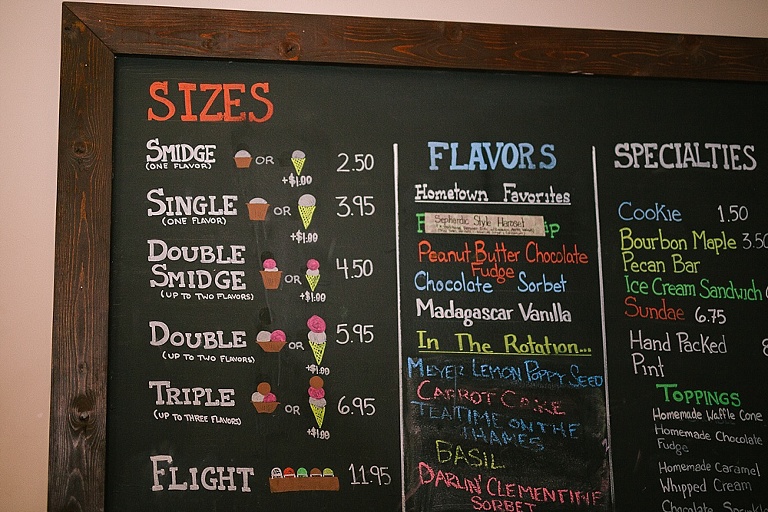 SIZES
SMIDGE OR 2.50
(ONE FLAVOR)
+$1.00
SINGLE OR 3.95
(ONE FLAVOR)
+$1.00
DOUBLE
SMIDGE OR 4.50
(UP TO TWO FLAVORS)
+$1.00
DOUBLE OR 5.95
(UP TO TWO FLAVORS)
+$1.00
TRIPLE OR 6.95
(UP TO THREE FLAVORS)
+$1.00
FLIGHT 11.95
FLAVORS
Hometown Favorites
Sephardic Style Haroset
Peanut Butter Chocolate
Fudge
Chocolate Sorbet
Madagascar Vanilla
In The Rotation...
MEYER LEMON POPPY SEED
CARROT CAKE
TEATIME ON THE
THAMES
BASIL
DARLIN' CLEMENTINE
SORBET
SPECIALTIES
Cookie 1.50
Bourbon Maple 3.50
Pecan Bar
Ice Cream Sandwich
Sundae 6.75
Hand Packed
Pint
TOPPINGS
Homemade Waffle Cone
Homemade Chocolate
Fudge
Homemade Caramel
Whipped Cream
Chocolate